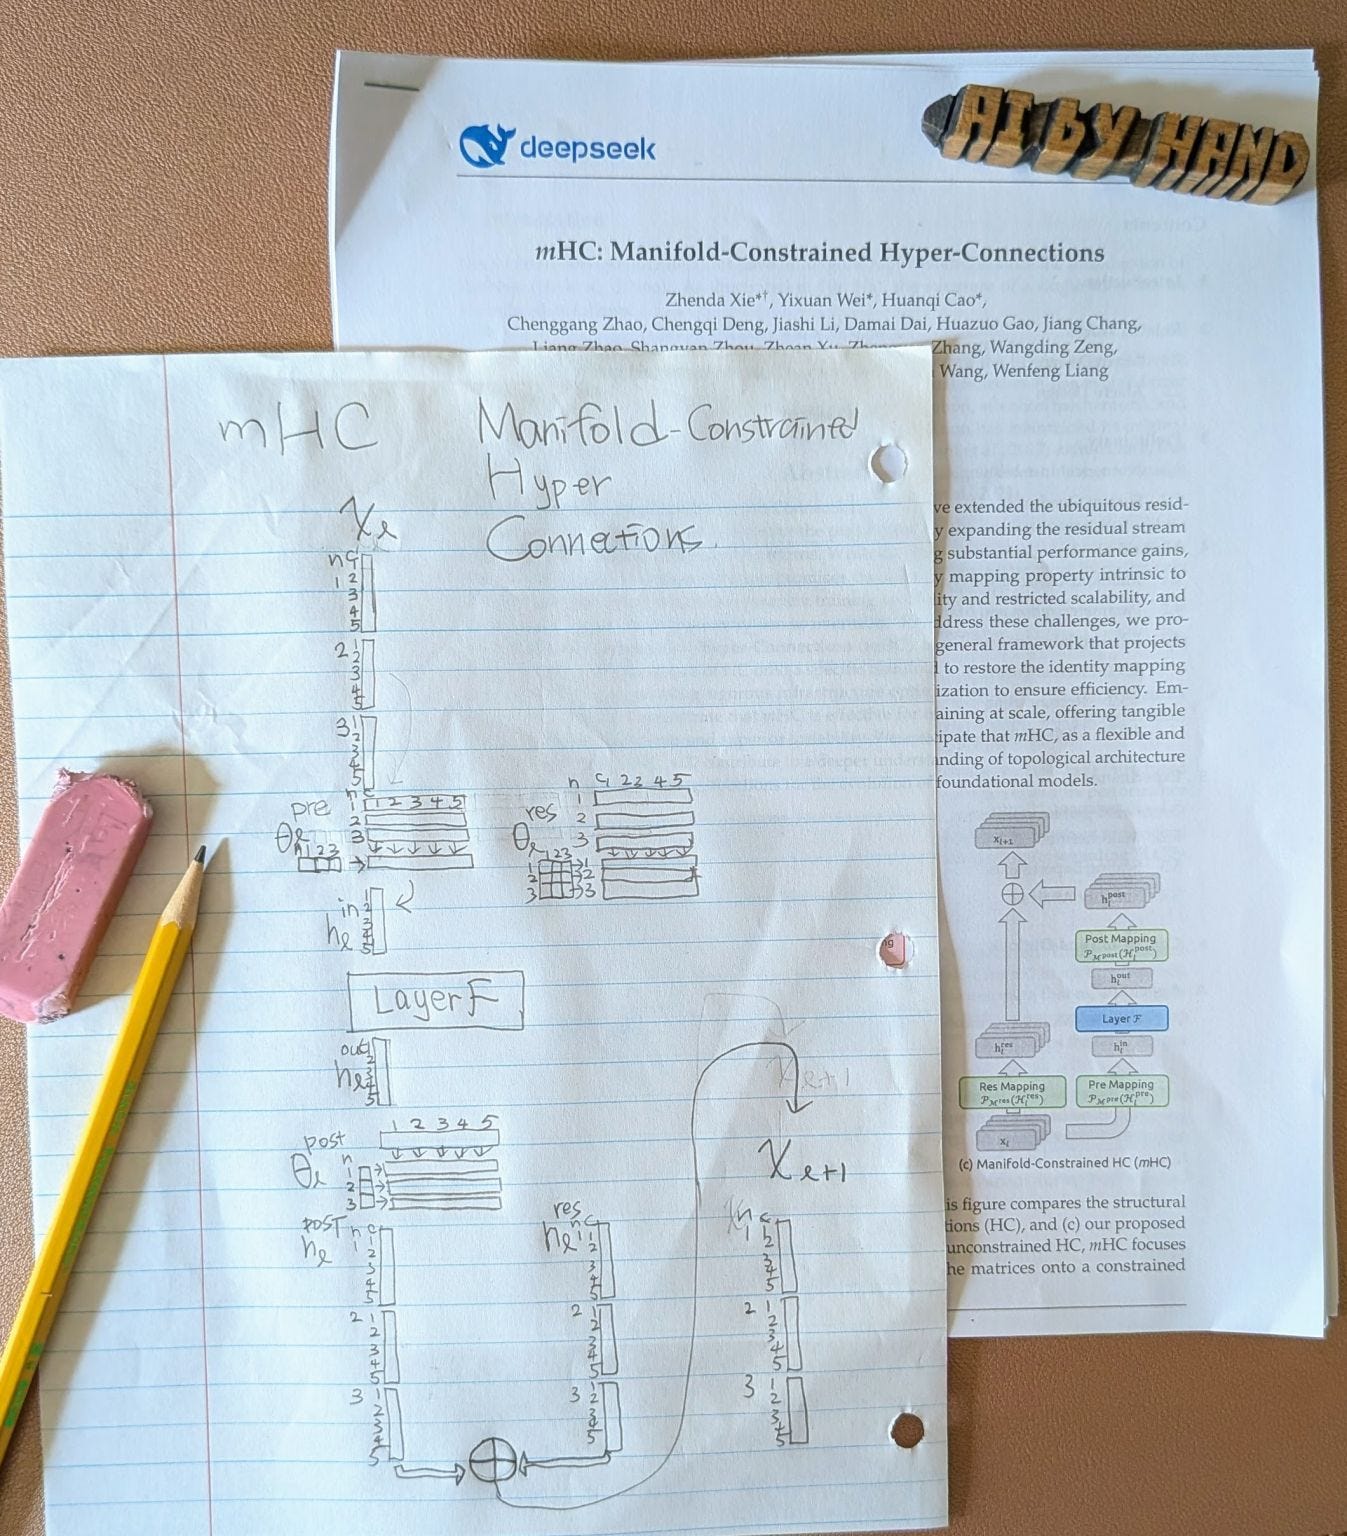 deepseek
AI by HAND
mHC: Manifold-Constrained Hyper-Connections
Zhenda Xie*†, Yixuan Wei*, Huanqi Cao*,
Chenggang Zhao, Chengqi Deng, Jiashi Li, Damai Dai, Huazuo Gao, Jiang Chang,
Liang Zhao, Shangyan Zhou, Zhean Xu, Zhang, Wangding Zeng,
Wang, Wenfeng Liang
ve extended the ubiquitous resid-
y expanding the residual stream
g substantial performance gains,
y mapping property intrinsic to
ity and restricted scalability, and
ddress these challenges, we pro-
general framework that projects
to restore the identity mapping
ization to ensure efficiency. Em-
aining at scale, offering tangible
ipate that mHC, as a flexible and
nding of topological architecture
foundational models.
xₗ₊₁
hₗᵖᵒˢᵗ
Post Mapping
P_Mᵖᵒˢᵗ(Hₗᵖᵒˢᵗ)
hₗᵒᵘᵗ
Layer F
hₗʳᵉˢ
hₗⁱⁿ
Res Mapping
P_Mʳᵉˢ(Hₗʳᵉˢ)
Pre Mapping
P_Mᵖʳᵉ(Hₗᵖʳᵉ)
xₗ
(c) Manifold-Constrained HC (mHC)
is figure compares the structural
tions (HC), and (c) our proposed
unconstrained HC, mHC focuses
he matrices onto a constrained
mHC Manifold-Constrained
Hyper
Connections.
Xₗ
n C
1
1
2
3
4
5
2
1
2
3
4
5
3
1
2
3
4
5
pre
θₗ
n 1 2 3
n c
1 1 2 3 4 5
2
3
res
θₗ
1 2 3
1
2
3
n C 1 2 3 4 5
1
2
3
1
2
3
in
hₗ
1
2
3
4
5
Layer F
out
hₗ
1
2
3
4
5
post
θₗ
n
1
2
3
1 2 3 4 5
post
hₗ
n c
1
1
2
3
4
5
2
1
2
3
4
5
3
1
2
3
4
5
res
hₗ
n c
1
1
2
3
4
5
2
1
2
3
4
5
3
1
2
3
4
5
Xₗ₊₁
Xₗ₊₁
n c
1
1
2
3
4
5
2
1
2
3
4
5
3
1
2
3
4
5